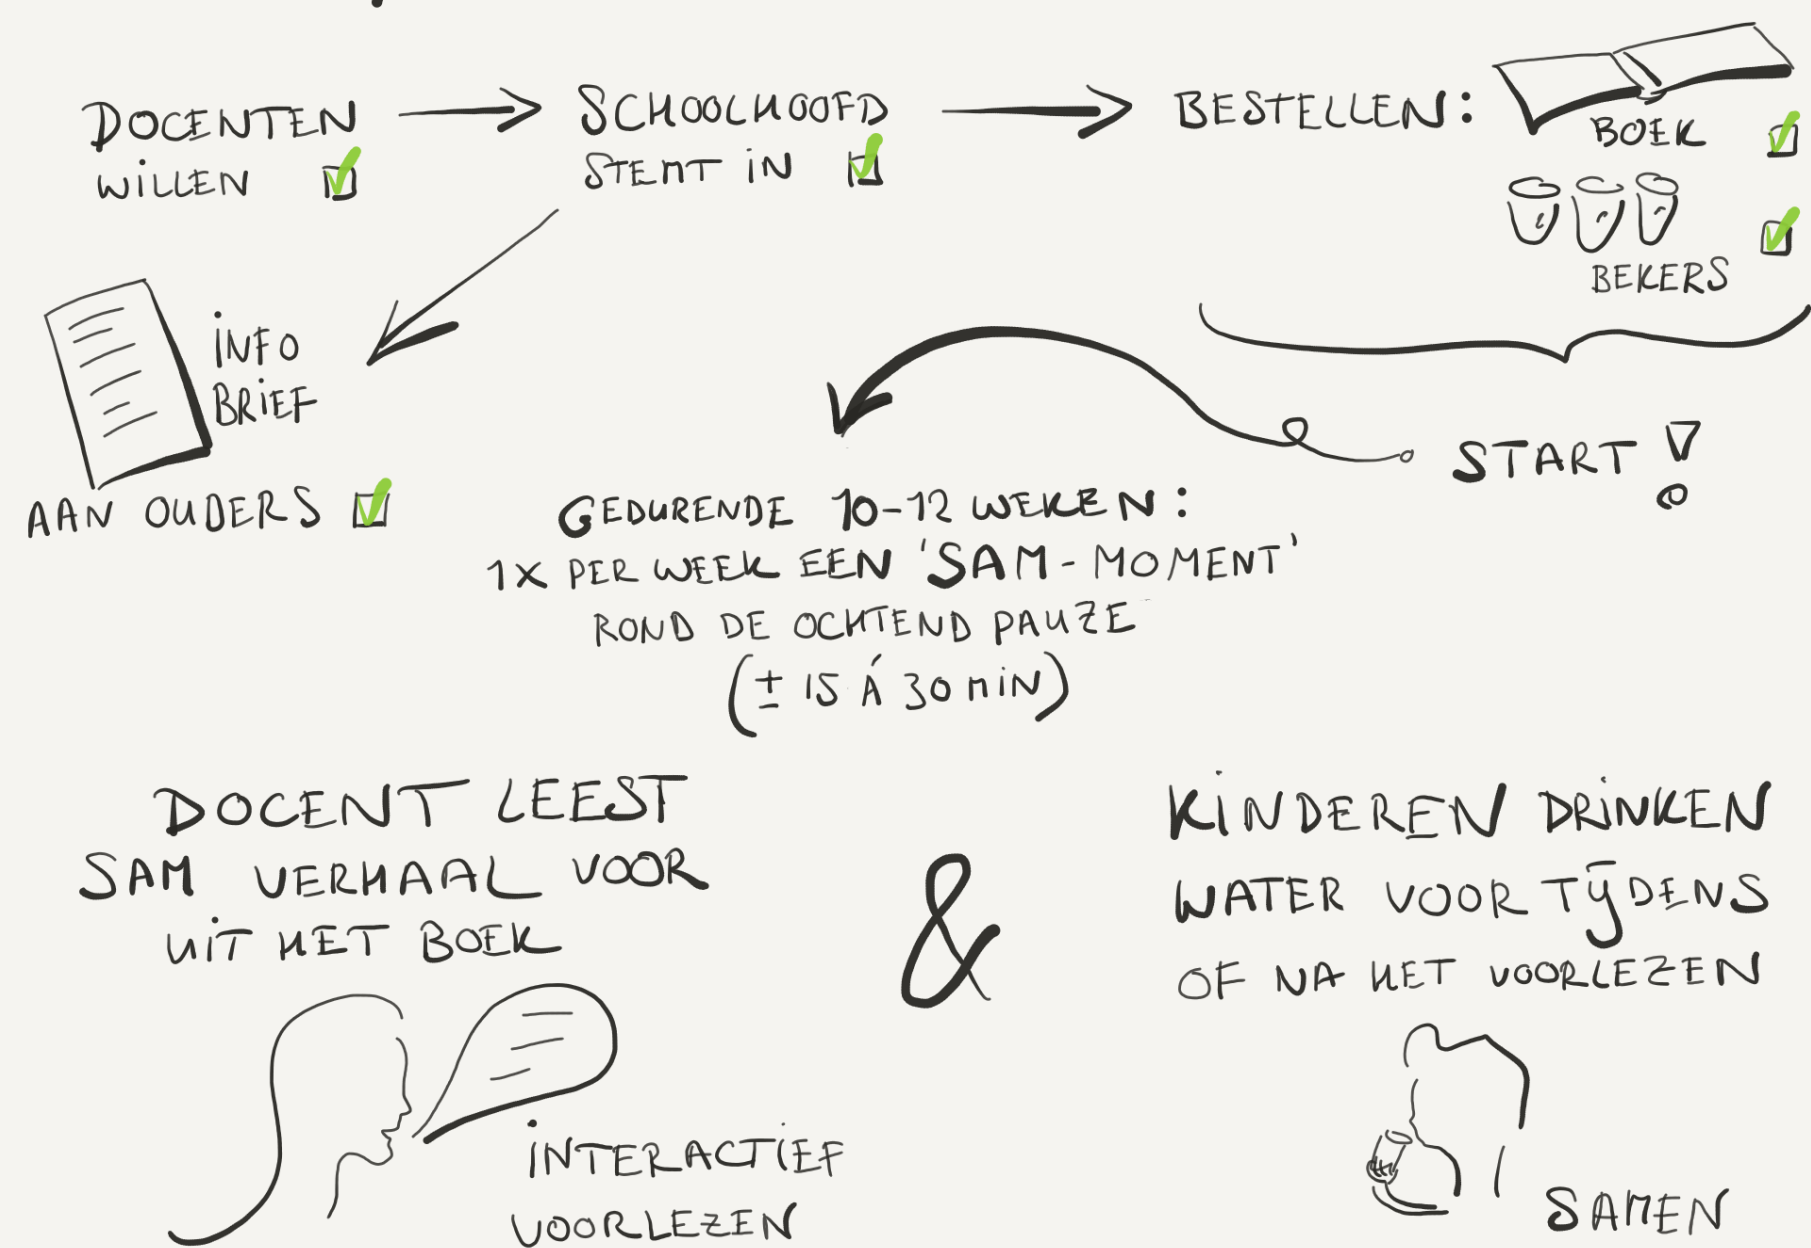 DOCENTEN
WILLEN
SCHOOLHOOFD
STEMT IN
BESTELLEN:
BOEK
BEKERS
INFO
BRIEF
AAN OUDERS
START!
GEDURENDE 10-12 WEKEN:
1X PER WEEK EEN 'SAM-MOMENT'
ROND DE OCHTEND PAUZE
(± 15 Á 30 MIN)
DOCENT LEEST
SAM VERHAAL VOOR
UIT HET BOEK
&
KINDEREN DRINKEN
WATER VOOR TIJDENS
OF NA HET VOORLEZEN
INTERACTIEF
VOORLEZEN
SAMEN